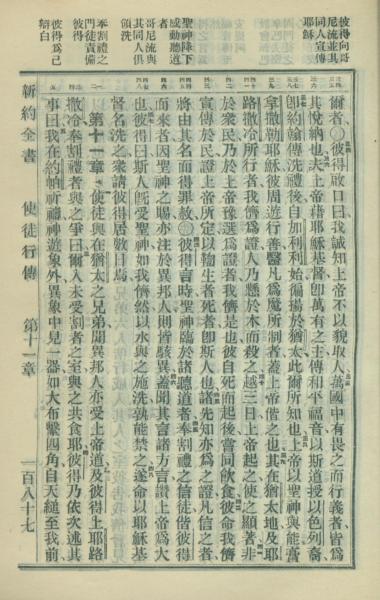 彼得向哥
尼流並其
同人宣傳
耶穌
聖神降下
感動聽道
哥尼流與
其同人俱
領洗
奉割禮之
門徒責備
彼得
彼得為己
辯白
爾者○彼得啟口曰我誠知上帝不以貌取人萬國中有畏之而行義者皆為
其悅納也夫上帝藉耶穌基督卽萬有之主傳和平福音以斯道授以色列裔
卽約翰傳洗禮後自加利利始徧揚於猶太此爾所知也上帝以聖神與能膏
拿撒勒耶穌彼周遊行善醫凡為魔所制者蓋上帝偕之也其在猶太地及耶
路撒冷所行者我儕為證人乃懸於木而殺之越三日上帝起之使之顯著非
於衆民乃於上帝豫選為證者我儕是也彼自死而起後嘗同飲食彼命我儕
宣傳於民證上帝所定以鞫生者死者卽斯人也諸先知亦為之證凡信之者
將由其名而得罪赦○彼得言時聖神臨於諸聽道者奉割禮之信徒偕彼得
而來者因聖神之賜亦注於異邦人則皆駭異蓋聞其言諸方言讚上帝為大
也彼得曰斯人旣受聖神如我儕然以水與之施洗孰能禁之遂命以耶穌基
督名洗之衆請彼得居數日焉
第十一章 使徒與在猶太之兄弟聞異邦人亦受上帝道及彼得上耶路
撒冷奉割禮者與之爭曰爾入未受割者之室與之共食耶彼得乃依次述其
事曰我在約帕祈禱神遊象外異象中見一器如大布繫四角自天縋至我前
新約全書 使徒行傳 第十一章 一百八十七